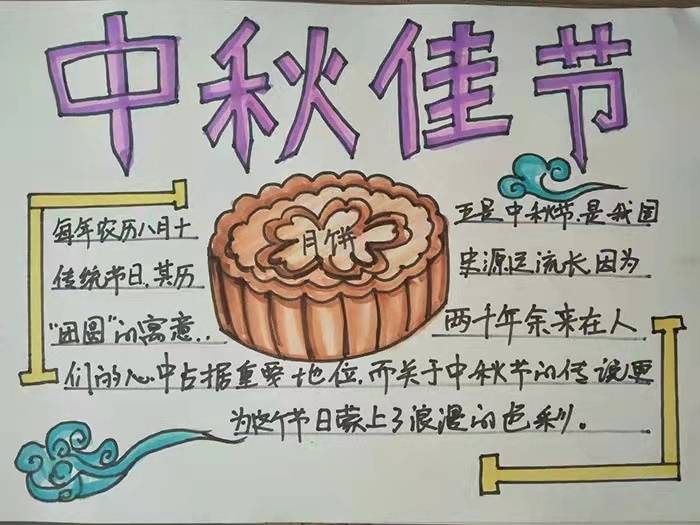 中秋佳节
每年农历八月十
五是中秋节.是我国
月饼
传统节日.其历
史源远流长.因为
“团圆”的寓意..
两千年余来在人
们的心中占据重要地位.而关于中秋节的传说更
为这个节日蒙上了浪漫的色彩。